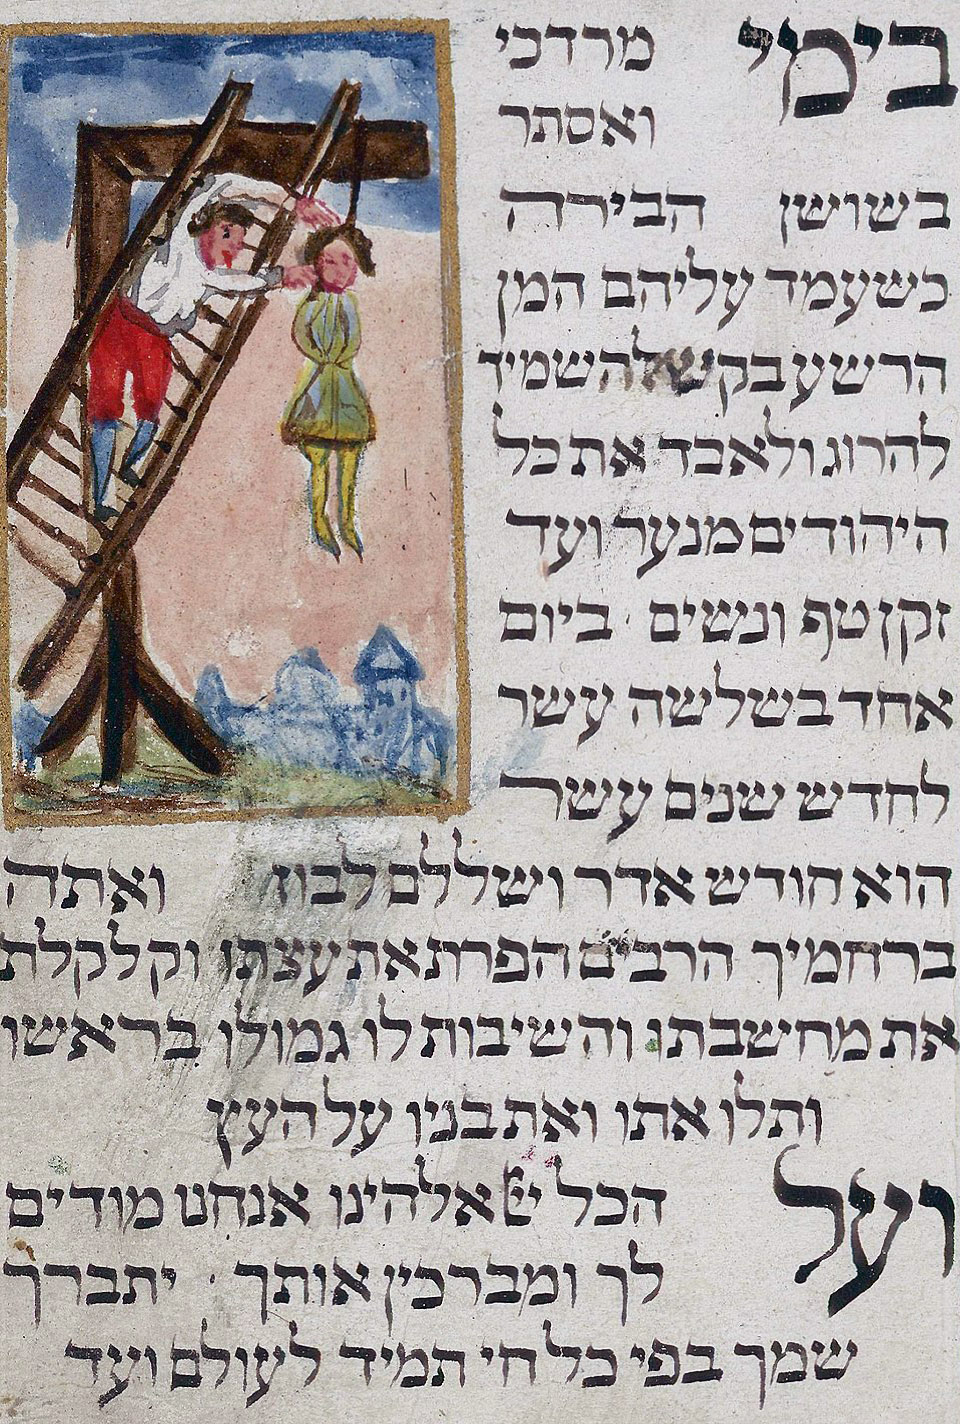 בימי מרדכי
ואסתר
בשושן הבירה
כשעמד עליהם המן
הרשע בקש להשמיד
להרוג ולאבד את כל
היהודים מנער ועד
זקן טף ונשים · ביום
אחד בשלשה עשר
לחדש שנים עשר
הוא חודש אדר ושללם לבוז ואתה
ברחמיך הרבים הפרת את עצתו וקלקלת
את מחשבתו והשיבות לו גמולו בראשו
ותלו אתו ואת בניו על העץ
ועל הכל יי אלהינו אנחנו מודים
לך ומברכין אותך · יתברך
שמך בפי כל חי תמיד לעולם ועד